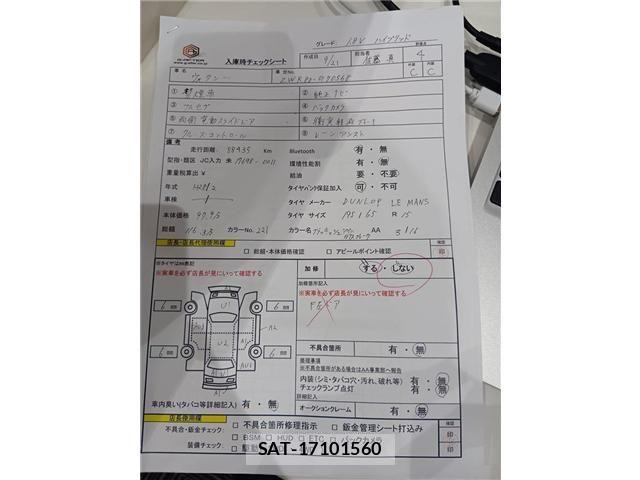 グレード: 1.8V ハイブリッド
入庫時チェックシート
作成日 9/21
担当者
評価点 4
外装 C
内装 C
車名 ヴォクシー
車台No.
① 禁煙車
② 純正ナビ
③ フルセグ
④ バックカメラ
⑤ 両側電動スライドドア
⑥ 衝突軽減ブレーキ
⑦ クルーズコントロール
⑧ レーンアシスト
備考
走行距離 88935 Km
Bluetooth 有・無
型指・類区 JC入力 未
環境性能割 有・無
重量税算出 ¥
給油 要・不要
年式
タイヤパンク保証加入 可・不可
車検
タイヤ メーカー DUNLOP LE MANS
本体価格
タイヤ サイズ 195/65 R 15
総額
カラーNo. 221
カラー名
AA 3/16
店長・店長代理使用欄
□ 総額・本体価格確認
□ アピールポイント確認
確認
印
※タイヤは㎜表記
※実車を必ず店長が見にいって確認する
加修 する・しない
加修箇所記入
※実車を必ず店長が見にいって確認する
F左ドア
6 ㎜
6 ㎜
6 ㎜
6 ㎜
U1
A2
U2
A1
不具合箇所 有・無
修理事項
※不具合箇所がある場合はAA事業部へ報告
内装(シミ・タバコ穴・汚れ、破れ等) 有・無
チェックランプ点灯 有・無
詳細記入
車内臭い(タバコ等詳細記入) 有・無
オークションクレーム 有・無
店長使用欄
確認
不具合・鈑金チェック:
□ 不具合箇所修理指示
□ 鈑金管理シート打込み
印
装備チェック:
□ BSM □ HUD □ ETC □ バックカメラ
印
SAT-17101560